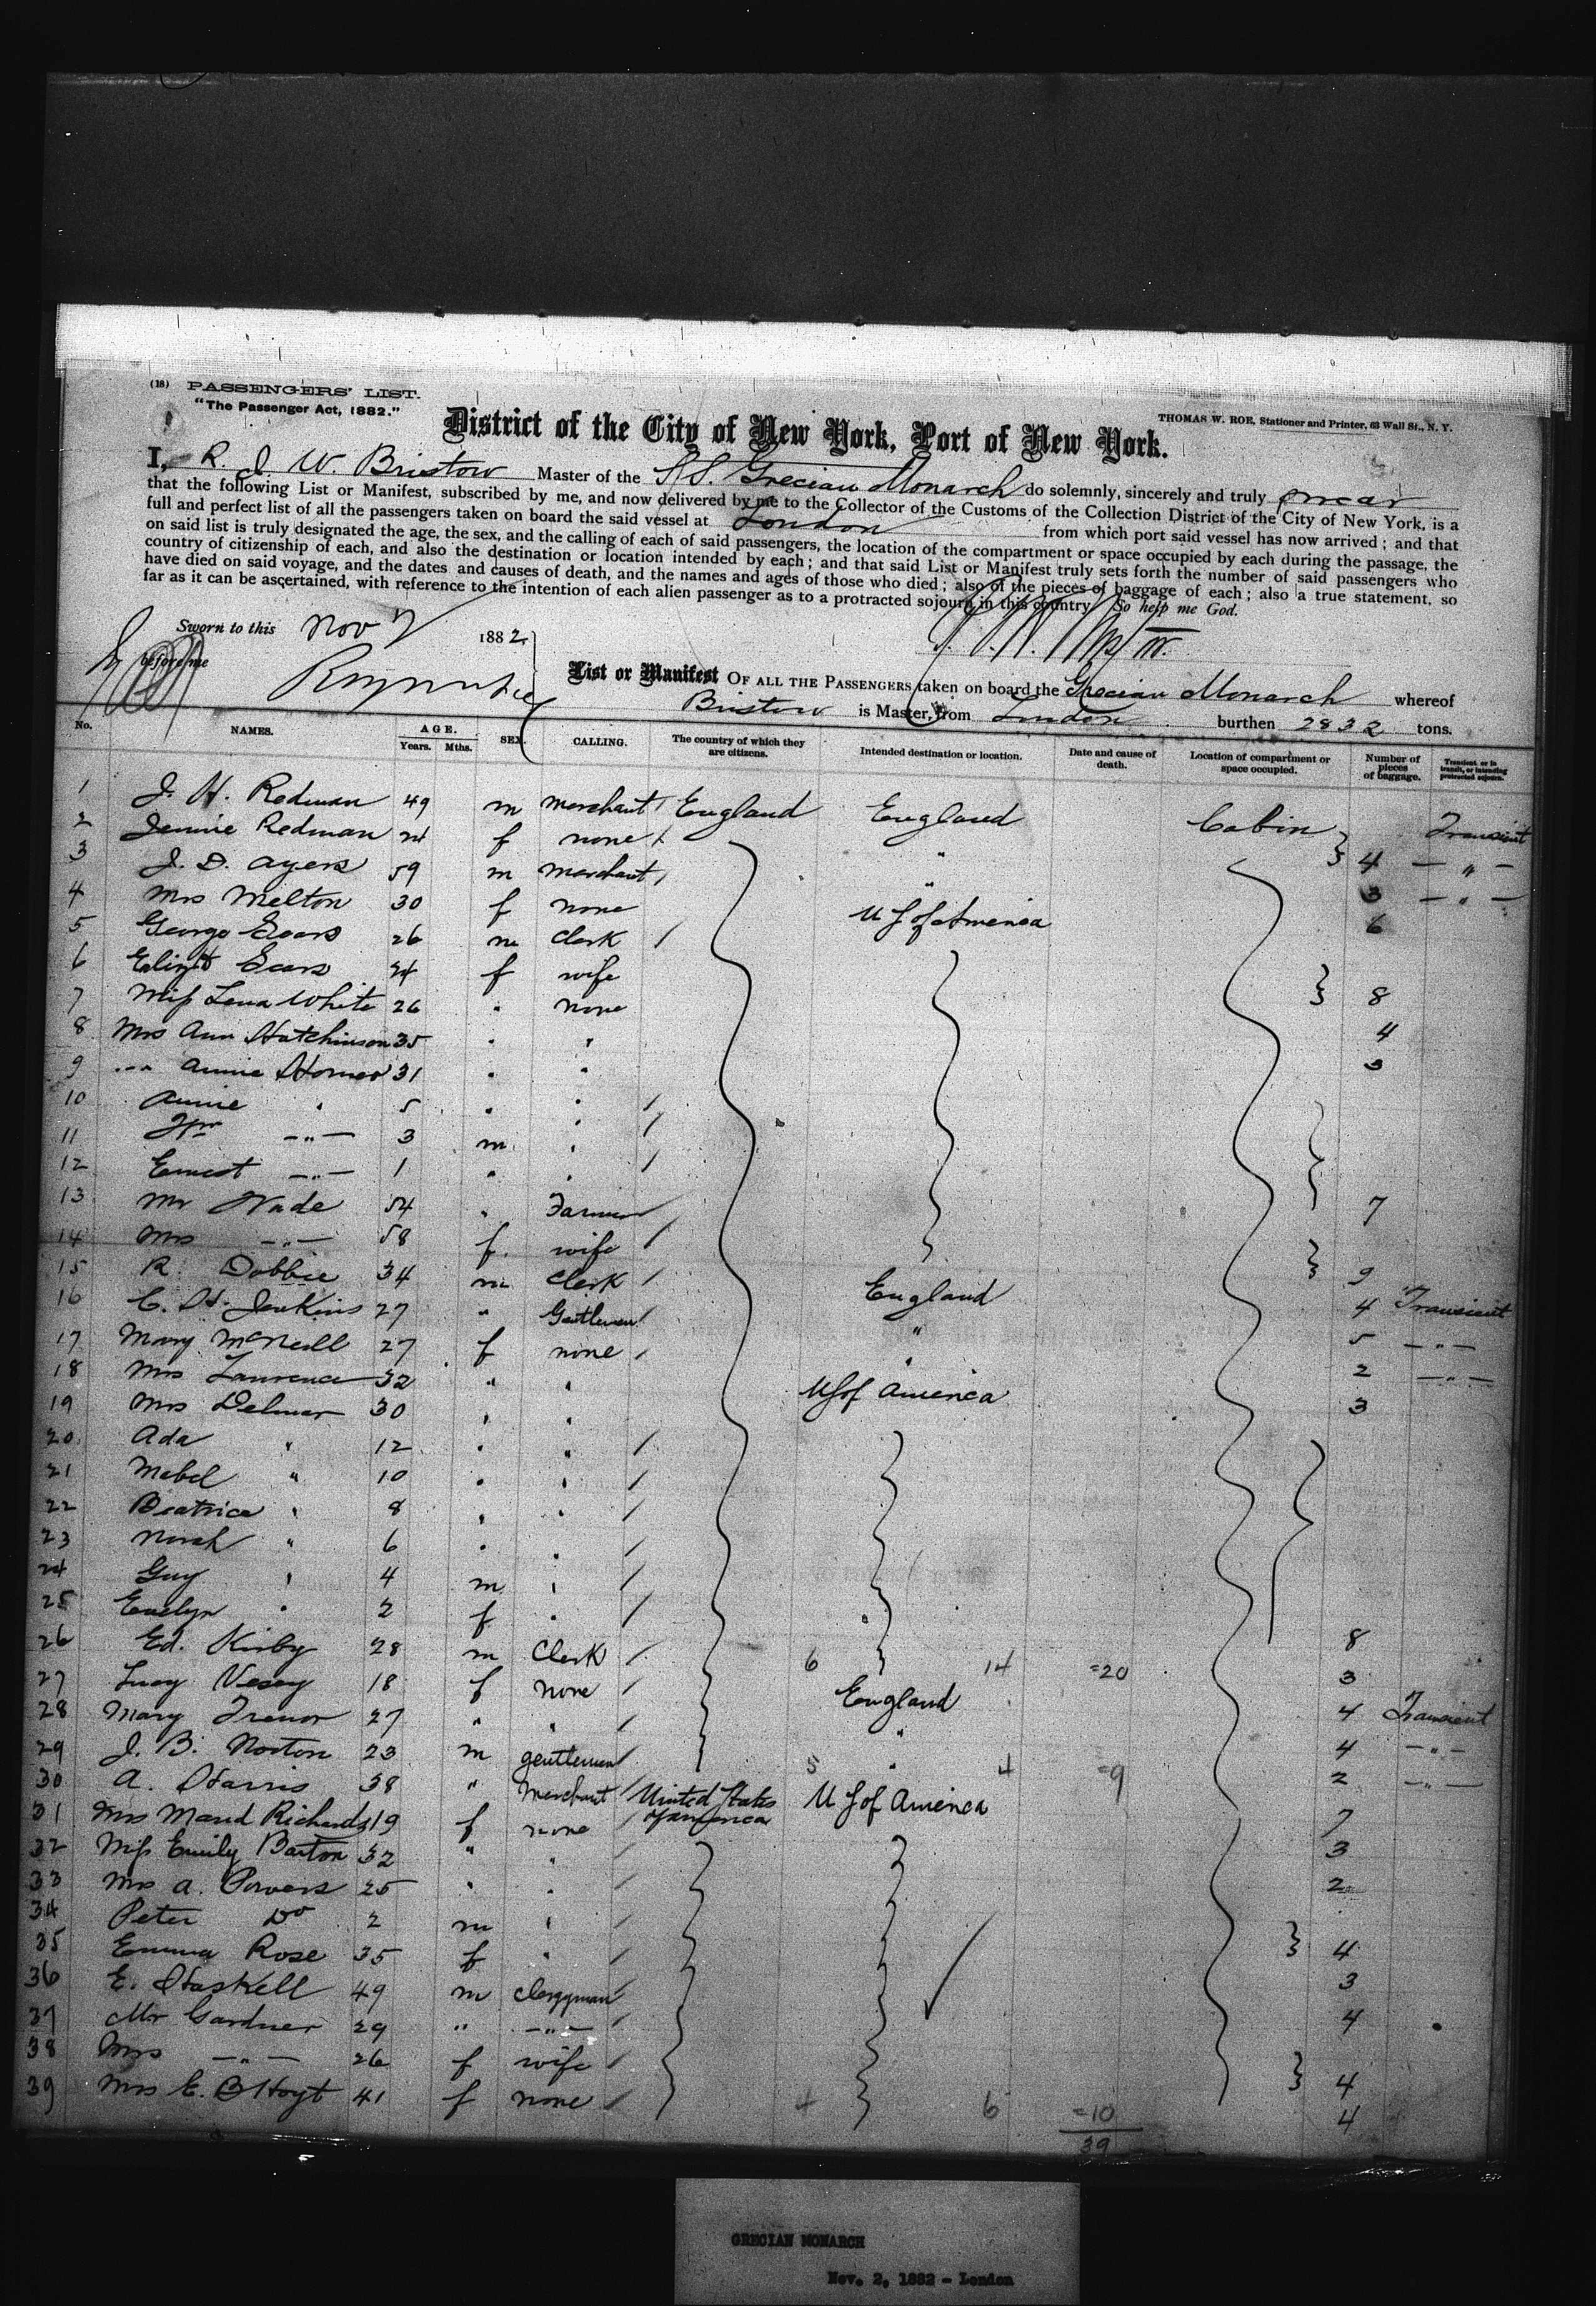 (18) PASSENGERS' LIST.
"The Passenger Act, 1882."
THOMAS W. ROE, Stationer and Printer, 63 Wall St., N. Y.
District of the City of New York, Port of New York.
I, R. J W. Bristow Master of the S.S. Grecian Monarch do solemnly, sincerely and truly swear
that the following List or Manifest, subscribed by me, and now delivered by me to the Collector of the Customs of the Collection District of the City of New York, is a
full and perfect list of all the passengers taken on board the said vessel at London from which port said vessel has now arrived; and that
on said list is truly designated the age, the sex, and the calling of each of said passengers, the location of the compartment or space occupied by each during the passage, the
country of citizenship of each, and also the destination or location intended by each; and that said List or Manifest truly sets forth the number of said passengers who
have died on said voyage, and the dates and causes of death, and the names and ages of those who died; also of the pieces of baggage of each; also a true statement, so
far as it can be ascertained, with reference to the intention of each alien passenger as to a protracted sojourn in this country. So help me God.
Sworn to this Nov 1882
before me
List or Manifest OF ALL THE PASSENGERS taken on board the Grecian Monarch whereof
Bristow is Master, from London burthen 2832 tons.
No. NAMES. AGE. Years. Mths. SEX. CALLING. The country of which they are citizens. Intended destination or location. Date and cause of death. Location of compartment or space occupied. Number of pieces of baggage. Transient or in transit, or intending protracted sojourn.
1 J. H. Redman 49 m merchant England England Cabin Transient
2 Jennie Redman 24 f none " 4 — " —
3 J. D. Ayers 59 m merchant " 3 — " —
4 Mrs Melton 30 f none U S of America 6
5 George Sears 26 m Clerk
6 Elizth Sears 24 f wife 8
7 Miss Lena White 26 " none 4
8 Mrs Ann Hutchinson 35 " " 3
9 — " Annie Homer 31 " "
10 Annie " 5 " "
11 Wm — " — 3 m "
12 Ernest — " — 1 " " 7
13 Mr Wade 54 " Farmer
14 Mrs — " — 58 f. wife 9
15 R. Dobbie 34 m Clerk England 4 Transient
16 C. H. Jenkins 27 " Gentleman " 5 — " —
17 Mary McNeill 27 f none " 2 — " —
18 Mrs Lawrence 32 " " U S of America 3
19 Mrs Delmar 30 " "
20 Ada " 12 " "
21 Mabel " 10 " "
22 Beatrice " 8 " "
23 Norah " 6 " "
24 Guy " 4 m "
25 Evelyn " 2 f " 8
26 Ed. Kirby 28 m Clerk 6 14 =20 3
27 Lucy Vesey 18 f none England 4 Transient
28 Mary Trenor 27 " " " 4 — " —
29 J. B. Norton 23 m gentleman 5 " 4 =9 2 — " —
30 A. Harris 38 " Merchant United States of America U S of America 7
31 Mrs Maud Richards 19 f none 3
32 Miss Emily Barton 32 " " 2
33 Mrs A. Powers 25 " "
34 Peter Do 2 m " 4
35 Emma Rose 35 f " 3
36 E. Haskell 49 m Clergyman 4
37 Mr Gardner 29 " — " —
38 Mrs — " — 26 f wife 4
39 Mrs E. B Hoyt 41 f none 4 6 =10 4
39
GRECIAN MONARCH
Nov. 2, 1882 - London